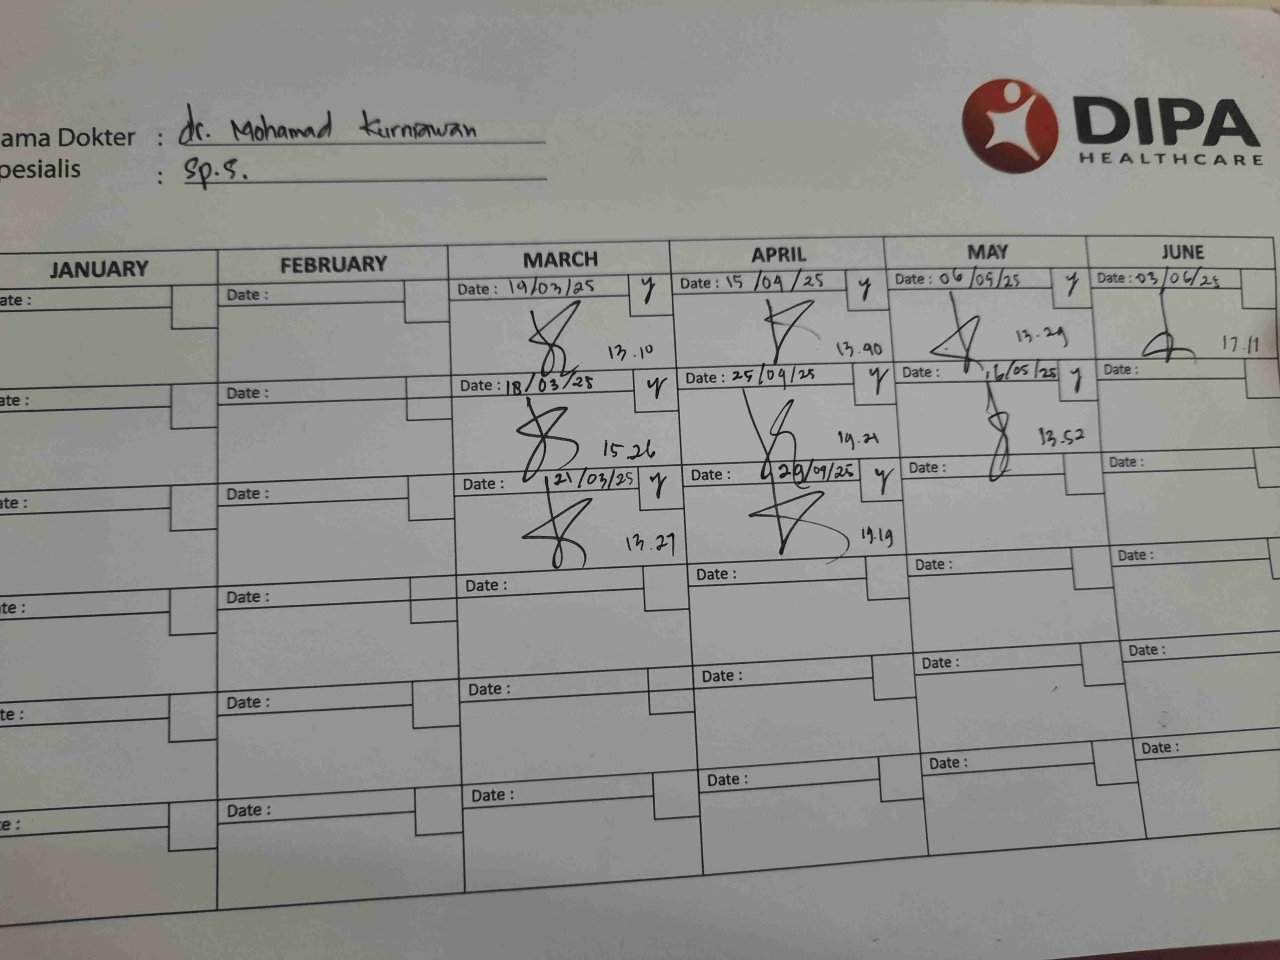 ama Dokter : dr. Mohamad Kurniawan
pesialis : Sp.S.
DIPA
HEALTHCARE
JANUARY FEBRUARY MARCH APRIL MAY JUNE
ate : Date : Date : 19/03/25 y Date : 15/04/25 y Date : 06/05/25 y Date : 03/06/25
13.10 13.40 13.29 17.11
ate : Date : Date : 18/03/25 y Date : 25/04/25 y Date : 16/05/25 y Date :
15.26 19.21 13.52
ate : Date : Date : 21/03/25 y Date : 29/04/25 y Date : Date :
13.27 19.19
te : Date : Date : Date : Date : Date :
te : Date : Date : Date : Date : Date :
e : Date : Date : Date : Date : Date :